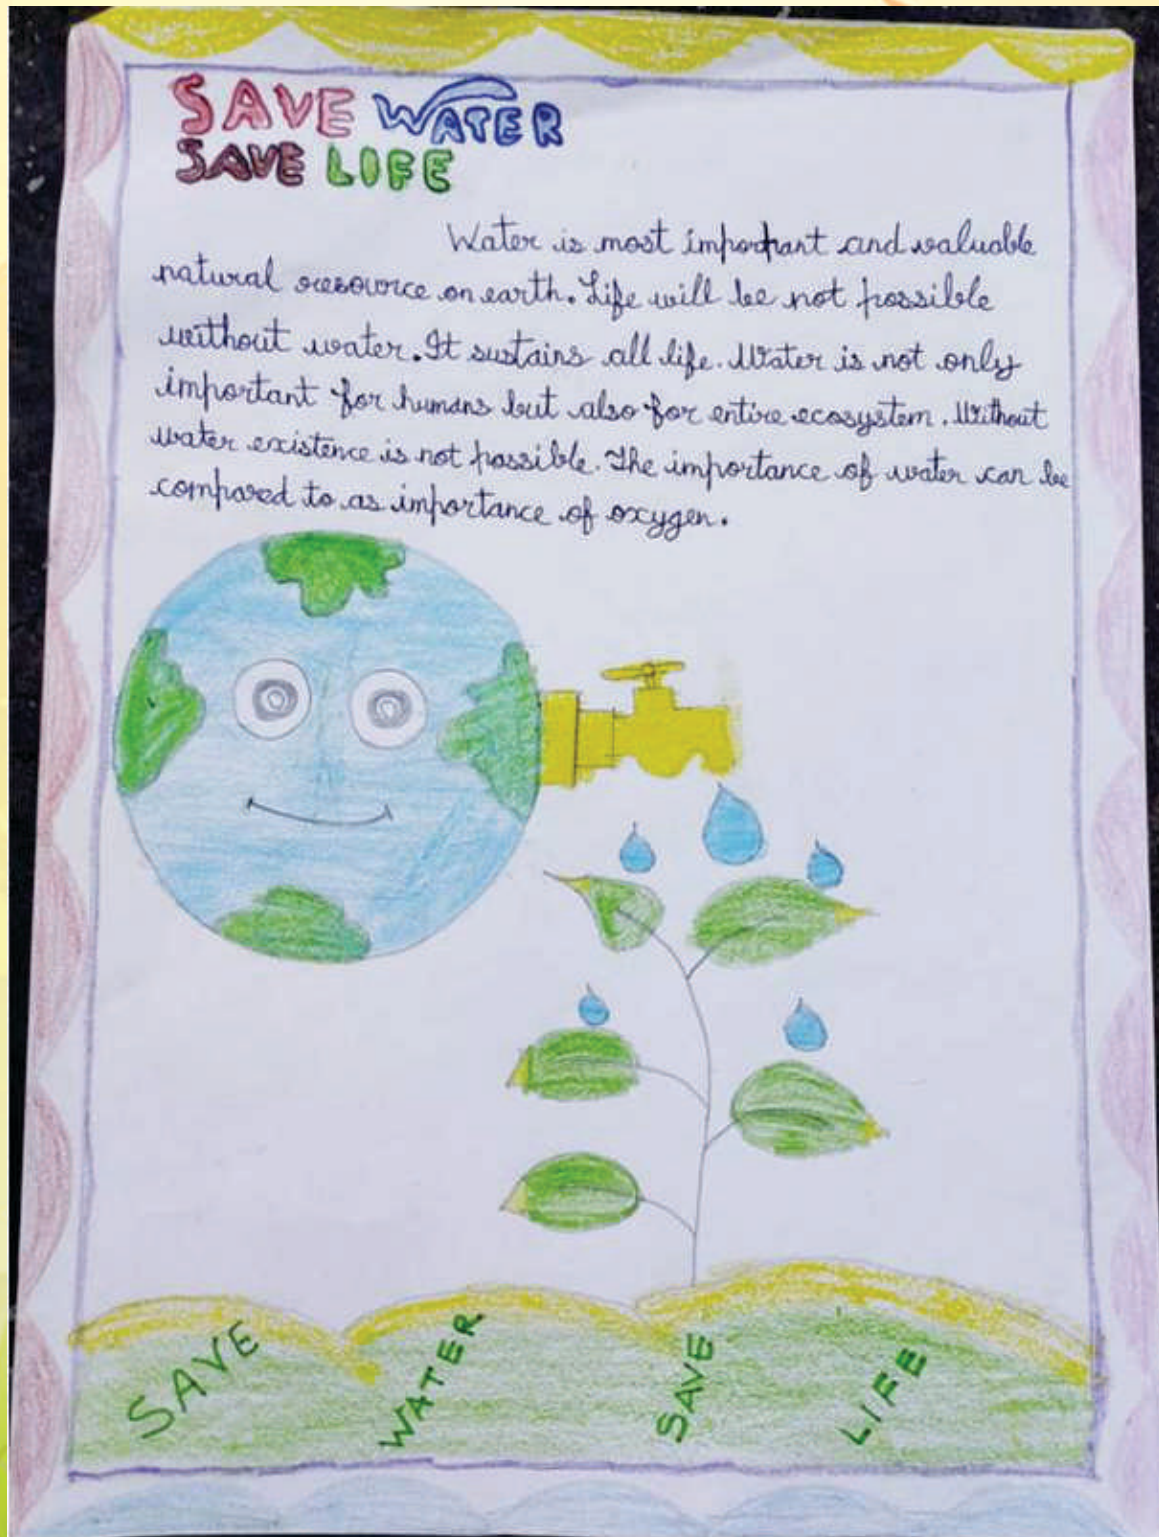 SAVE WATER
SAVE LIFE
Water is most important and valuable
natural resource on earth. Life will be not possible
without water. It sustains all life. Water is not only
important for humans but also for entire ecosystem. Without
water existence is not possible. The importance of water can be
compared to as importance of oxygen.
SAVE WATER SAVE LIFE